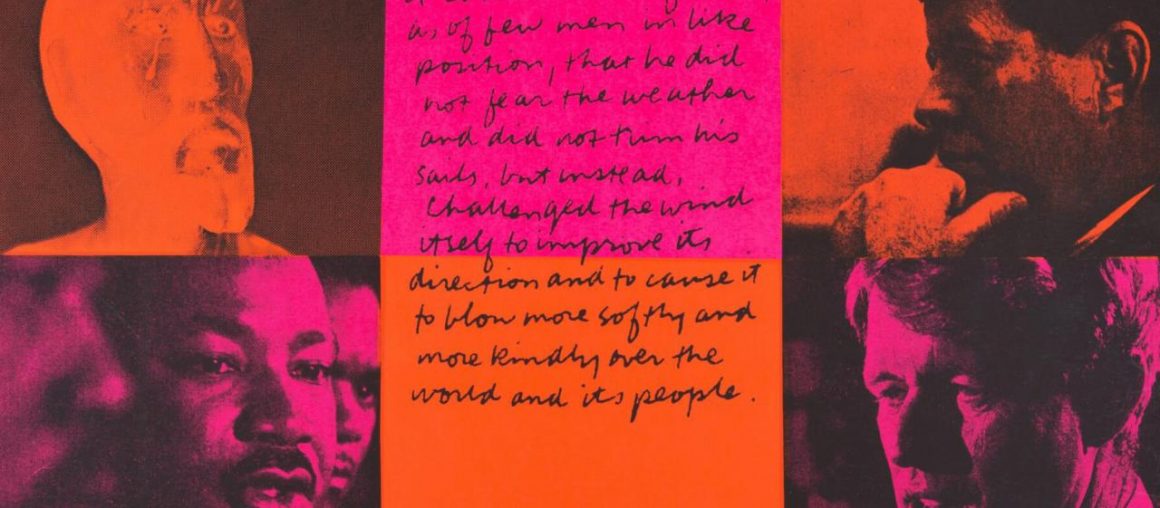 as of few men in like
position, that he did
not fear the weather
and did not turn his
sails, but instead,
challenged the wind
itself to improve its
direction and to cause it
to blow more softly and
more kindly over the
world and its people.